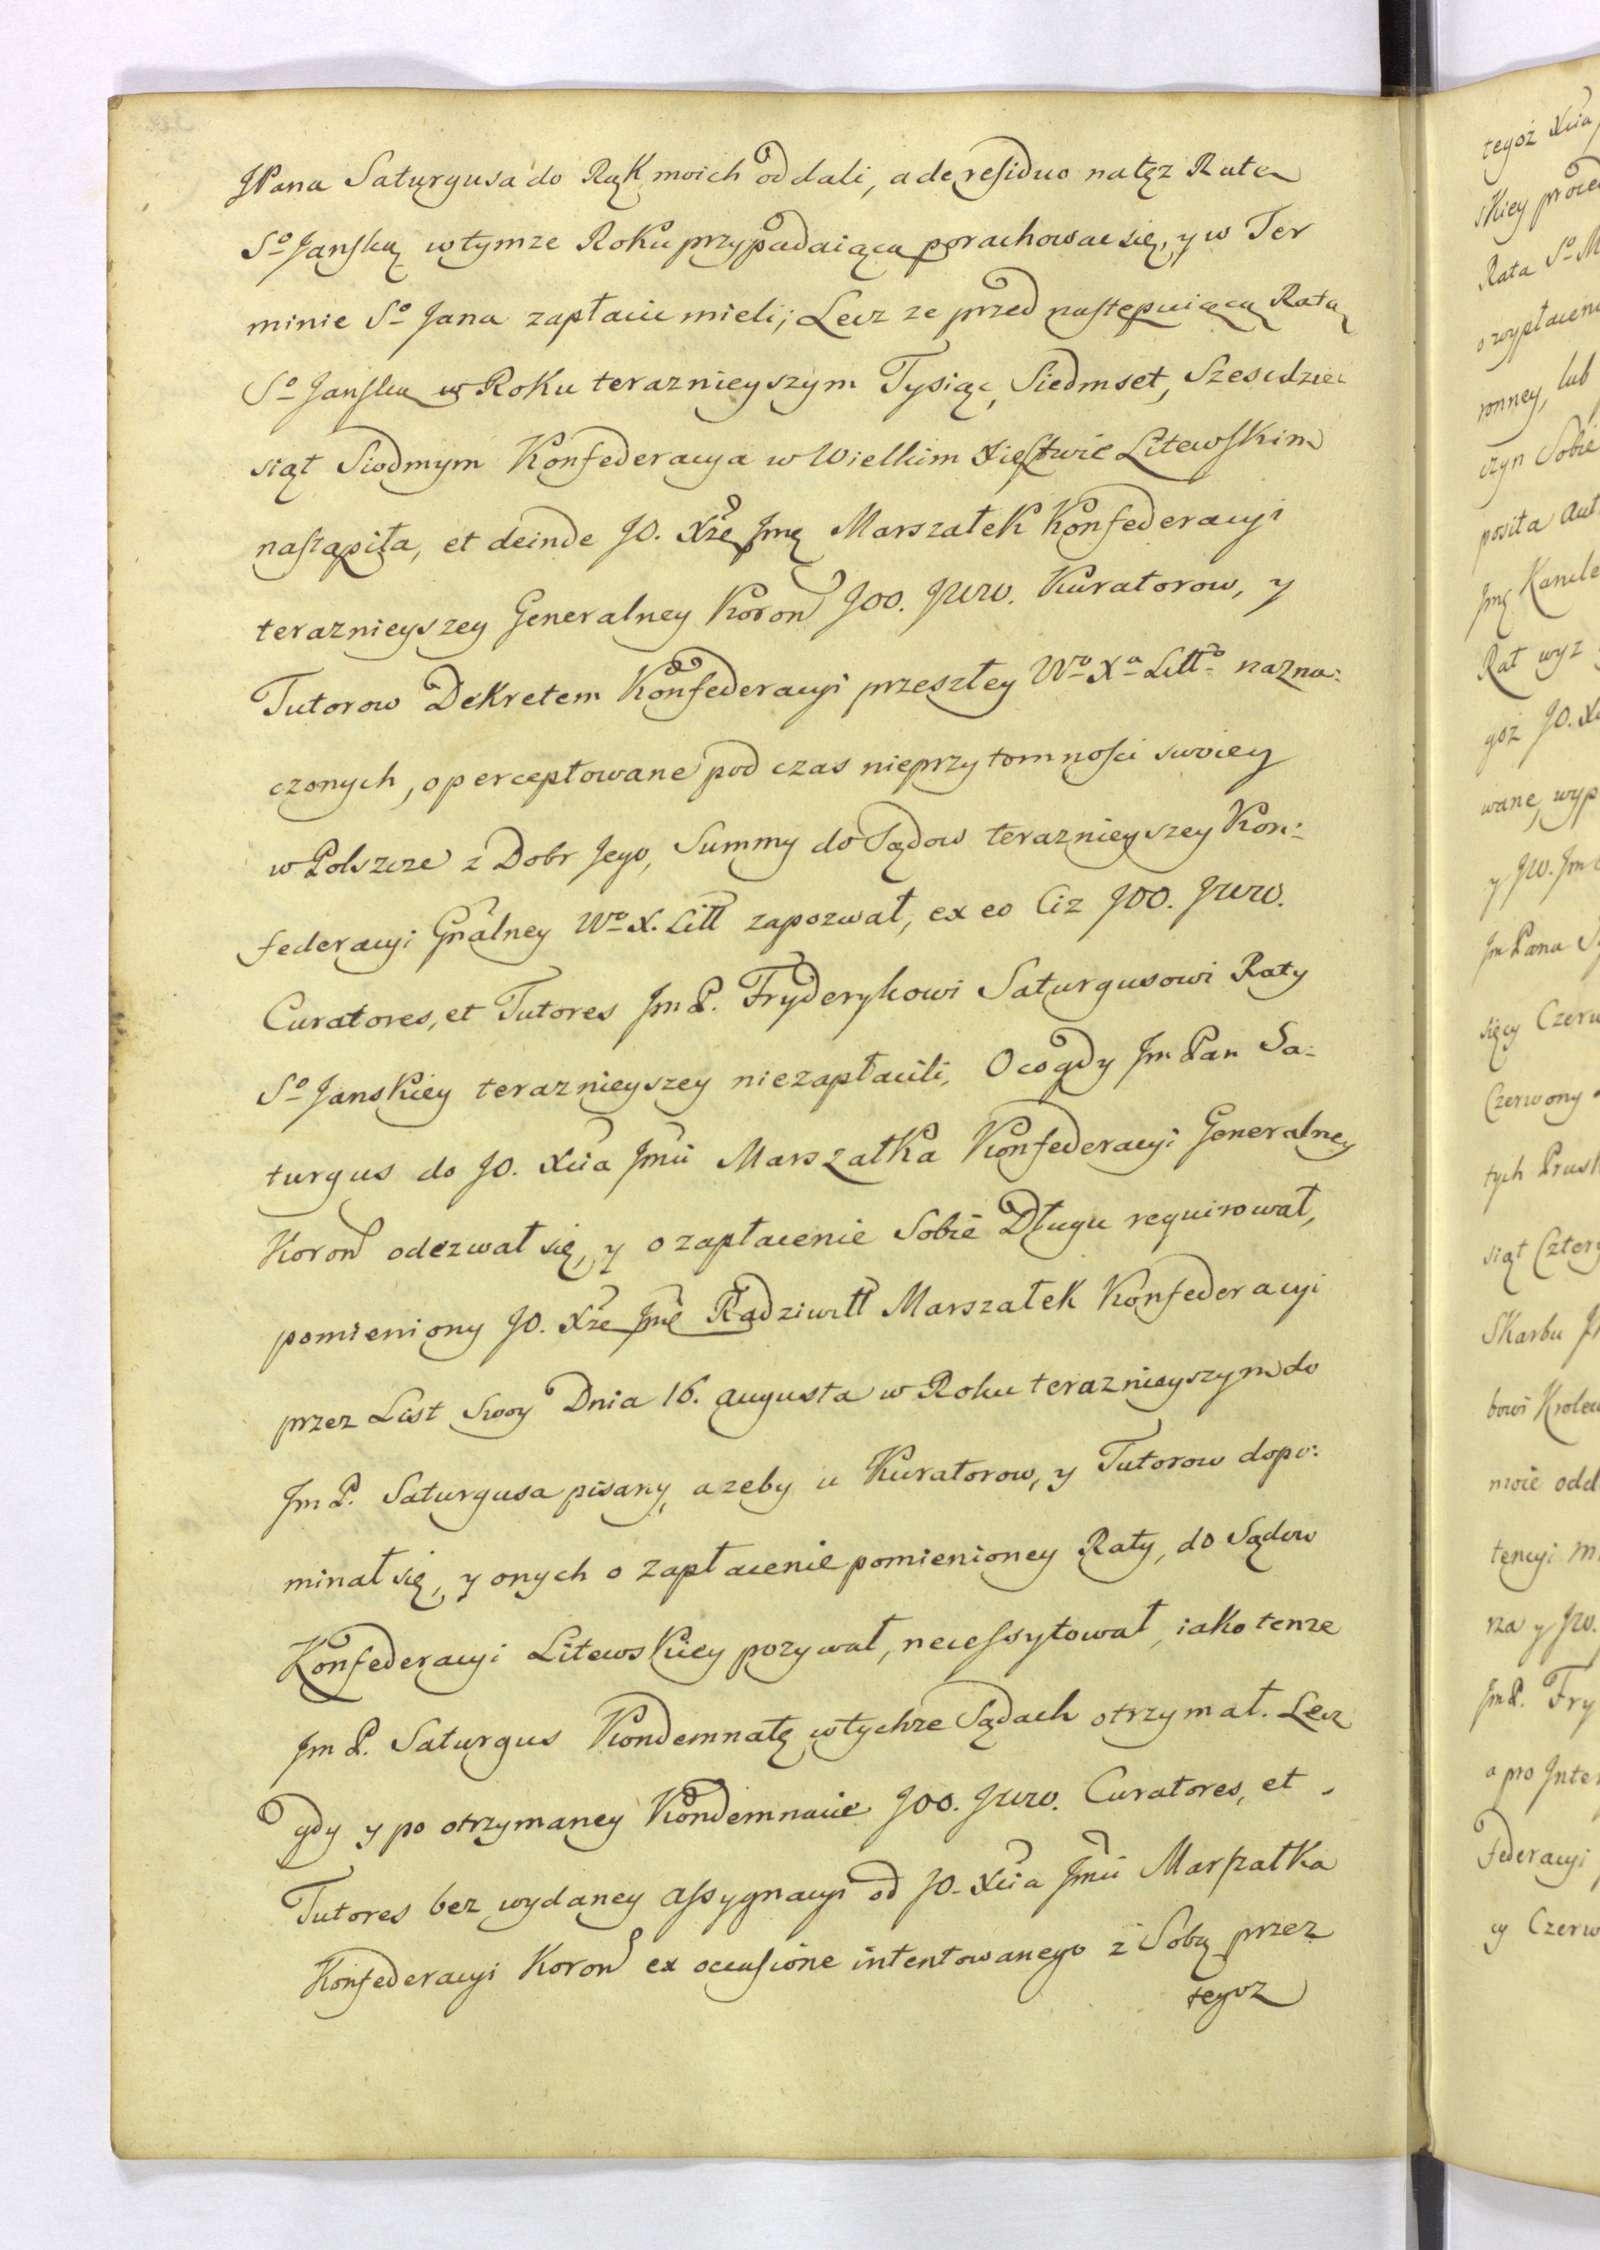 JPana Saturgusa do Rąk moich oddali, a de residuo na tęz Ratę
So Janską w tymze Roku przypadaiącą porachowac się, y w Ter
minie So Jana zapłacic mieli; Lecz ze przed następuiącą Ratą
So Janską w Roku teraznieyszym Tysiąc, Siedmset, Szescdzie
siąt Siodmym Konfederacya w Wielkim Xięstwie Litewskim
nastąpiła, et deinde JO. Xże Jmę Marszałek Konfederacyi
teraznieyszey Generalney Koron JOO. JWW. Kuratorow, y
Tutorow Dekretem Konfederacyi przeszłey Wo Xa Litto nazna:
czonych, o perceptowane pod czas nieprzytomności swoiey
w Polszcze z Dobr Jego, Summy do Sądow teraznieyszey Kon:
federacyi Gnalney Wo X. Litt zapozwał, ex eo Ciz JOO. JWW.
Curatores, et Tutores Jm P. Fryderykowi Saturgusowi Raty
So Janskiey teraznieyszey niezapłacili, O co gdy Jm Pan Sa:
turgus do JO. Xcia Jmci Marszałka Konfederacyi Generalney
Koron odezwał się, y o zapłacenie Sobie Długu requirował,
pomieniony JO. Xże Jmę Radziwiłł Marszałek Konfederacyi
przez List Swoy Dnia 16. Augusta w Roku teraznieyszym do
Jm P. Saturgusa pisany, azeby u Kuratorow, y Tutorow dopo:
minał się, y onych o zapłacenie pomienioney Raty, do Sądow
Konfederacyi Litewskiey pozywał, necessytował, iako tenze
Jm P. Saturgus Kondemnatę w tychze Sądach otrzymał. Lecz
gdy y po otrzymaney Kondemnacie JOO. JWW. Curatores, et
Tutores bez wydaney Assygnacyi od JO. Xcia Jmci Marszałka
Konfederacyi Koron ex occasione intentowanego z Sobą przez
tegoz
tegoż Xcia
skiey proce
Rata So M
o wypłaceni
ronney, lub
czyn Sobie
posita Aut
Jmę Kancle
Rat wyz
goż JO. X
wane, wyp
y JW. Jm
Jm Pana S
sięcy Czerw
Czerwony
tych Prusk
siąt Cztery
Skarbu
bowi Krolew
moie odd
tencyi
rza y JW.
Jm P. Fry
a pro Inter
federacyi
cy Czerw